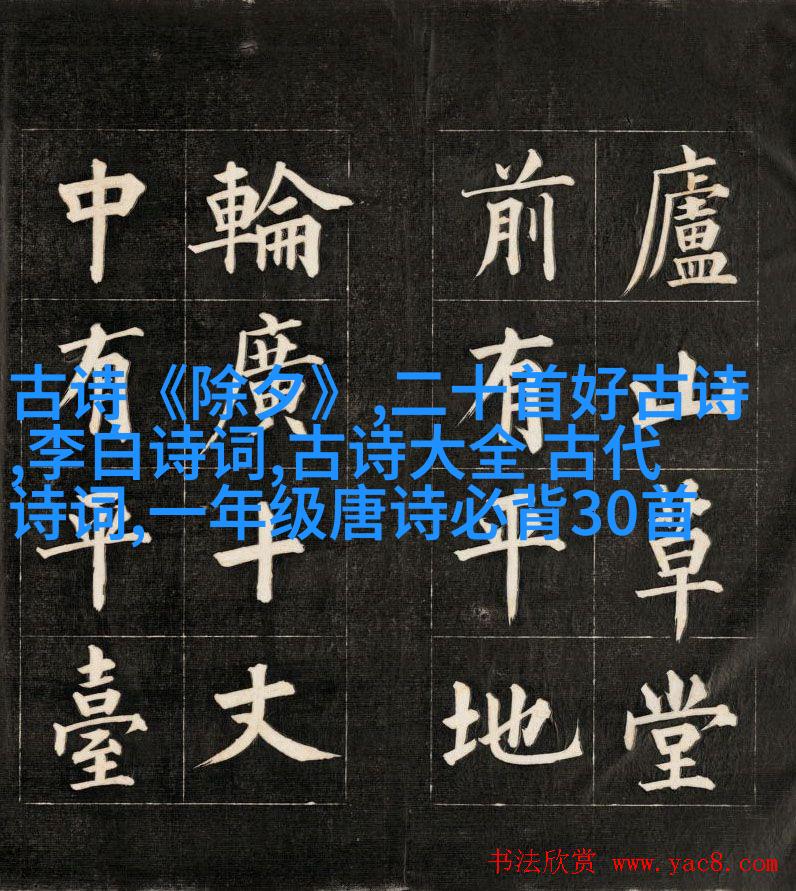 廬山草堂
前有平地
輪廣十丈
中有平臺
古诗《除夕》,二十首好古诗
,李白诗词,古诗大全 古代
诗词,一年级唐诗必背30首
书法欣赏 www.yac8.com